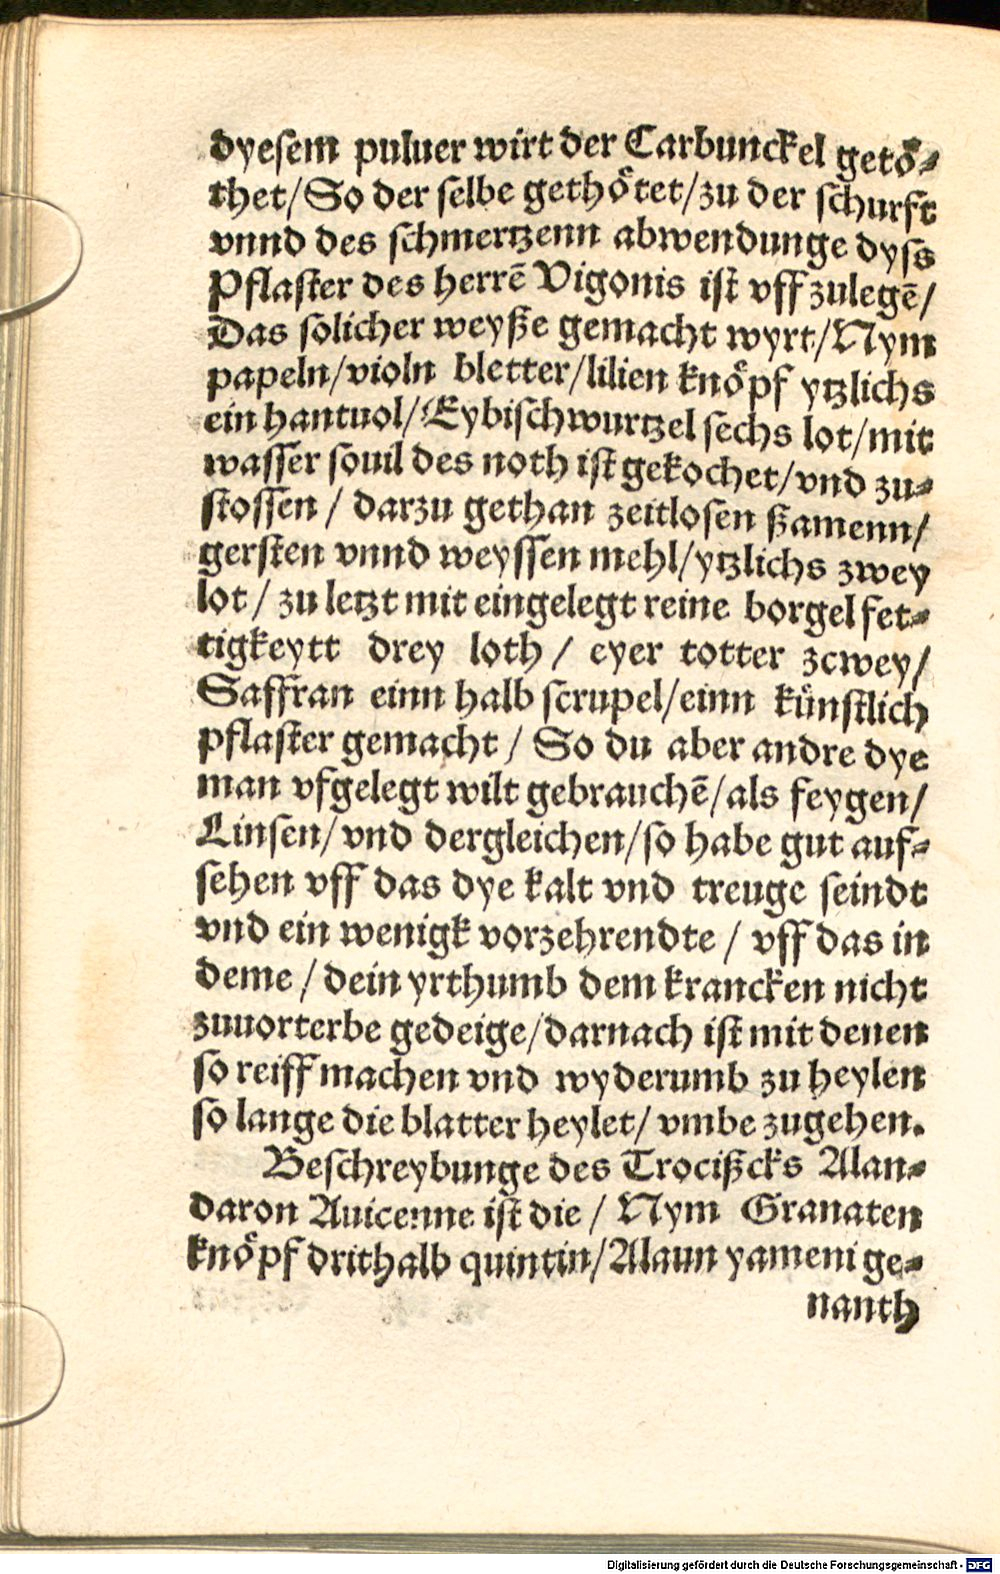 dyesem puluer wirt der Carbunckel getoͤ⸗
thet/So der selbe gethoͤtet/zu der schurft
vnnd des schmertzenn abwendunge dyss
Pflaster des herrē Vigonis ist vff zulegē/
Das solicher weyße gemacht wyrt/Nym
papeln/violn bletter/lilien knoͤpf ytzlichs
ein hantuol/Eybischwurtzel sechs lot/mit
wasser souil des noth ist gekochet/vnd zu⸗
stossen / darzu gethan zeitlosen ßamenn/
gersten vnnd weyssen mehl/ytzlichs zwey
lot / zu letzt mit eingelegt reine borgel fet⸗
tigkeytt drey loth / eyer totter zcwey/
Saffran einn halb scrupel/einn kuͤnstlich
pflaster gemacht / So du aber andre dye
man vfgelegt wilt gebrauchē/als feygen/
Linsen/vnd dergleichen/so habe gut auf⸗
sehen vff das dye kalt vnd treuge seindt
vnd ein wenigk vorzehrendte / vff das in
deme / dein yrthumb dem krancken nicht
zuuorterbe gedeige/darnach ist mit denen
so reiff machen vnd wyderumb zu heylen
so lange die blatter heylet/ vmbe zugehen.
Beschreybunge des Trocißcks Alan⸗
daron Auicenne ist die / Nym Granaten
knoͤpf drithalb quintin/Alaun yameni ge⸗
nanth
Digitalisierung gefördert durch die Deutsche Forschungsgemeinschaft - DFG